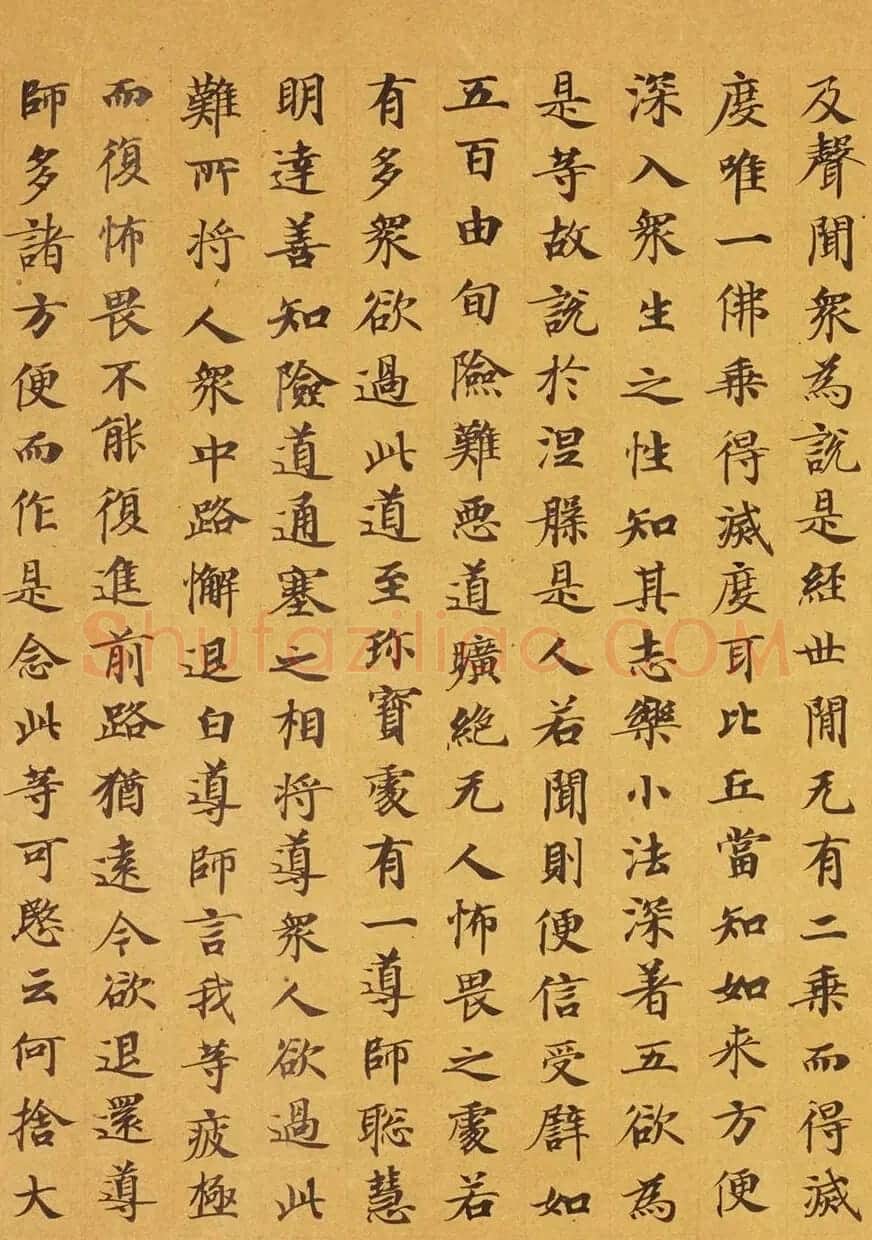 及聲聞衆為說是經世間无有二乘而得滅
度唯一佛乘得滅度耳比丘當知如来方便
深入衆生之性知其志樂小法深著五欲為
是等故說於涅槃是人若聞則便信受辟如
五百由旬險難惡道曠絶无人怖畏之處若
有多衆欲過此道至珎寶處有一導師聡慧
明達善知險道通塞之相将導衆人欲過此
難所将人衆中路懈退白導師言我等疲極
而復怖畏不能復進前路猶遠今欲退還導
師多諸方便而作是念此等可愍云何捨大
Shufaziliao.COM